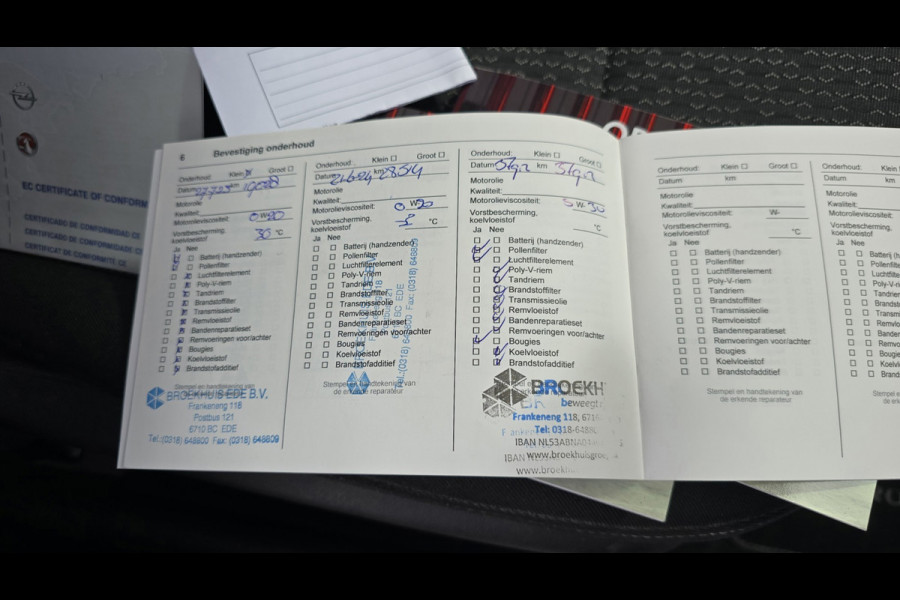 EC CERTIFICATE OF CONFORM
CERTIFICADO DE CONFORMIDADE CE
CERTIFICAT DE CONFORMITE CE
6
Bevestiging onderhoud
Onderhoud: Klein Groot
Datum km
Motorolie
Kwaliteit:
Motorolieviscositeit: 0 W 20
Vorstbescherming,
koelvloeistof 30 °C
Ja Nee
Batterij (handzender)
Pollenfilter
Luchtfilterelement
Poly-V-riem
Tandriem
Brandstoffilter
Transmissieolie
Remvloeistof
Bandenreparatieset
Remvoeringen voor/achter
Bougies
Koelvloeistof
Brandstofadditief
Stempel en handtekening van
BROEKHUIS EDE B.V.
Frankeneng 118
Postbus 121
6710 BC EDE
Tel: (0318) 648800 Fax: (0318) 648809
Onderhoud: Klein Groot
Datum km 28514
Motorolie
Kwaliteit:
Motorolieviscositeit: 0 W 20
Vorstbescherming,
koelvloeistof °C
Ja Nee
Batterij (handzender)
Pollenfilter
Luchtfilterelement
Poly-V-riem
Tandriem
Brandstoffilter
Transmissieolie
Remvloeistof
Bandenreparatieset
Remvoeringen voor/achter
Bougies
Koelvloeistof
Brandstofadditief
Stempel en handtekening van
de erkende reparateur
BC EDE
Tel.: (0318) 648800 Fax: (0318) 648809
Onderhoud: Klein Groot
Datum km
Motorolie
Kwaliteit:
Motorolieviscositeit: 5 W- 30
Vorstbescherming,
koelvloeistof °C
Ja Nee
Batterij (handzender)
Pollenfilter
Luchtfilterelement
Poly-V-riem
Tandriem
Brandstoffilter
Transmissieolie
Remvloeistof
Bandenreparatieset
Remvoeringen voor/achter
Bougies
Koelvloeistof
Brandstofadditief
BROEKH
beweegt
Frankeneng 118, 671
Tel: 0318-6488
IBAN NL53ABNA0
www.broekhuisgroe
www.broek
Onderhoud: Klein Groot
Datum km
Motorolie
Kwaliteit:
Motorolieviscositeit: W-
Vorstbescherming,
koelvloeistof °C
Ja Nee
Batterij (handzender)
Pollenfilter
Luchtfilterelement
Poly-V-riem
Tandriem
Brandstoffilter
Transmissieolie
Remvloeistof
Bandenreparatieset
Remvoeringen voor/achter
Bougies
Koelvloeistof
Brandstofadditief
Stempel en handtekening van
de erkende reparateur
Onderhoud: Klein
Datum km
Motorolie
Kwaliteit:
Motorolieviscositeit:
Vorstbescherming,
koelvloeistof
Ja Nee
Batterij
Pollenf
Luchtfil
Poly-V
Tandrie
Brands
Transm
Remvlo
Banden
Remvo
Bougies
Koelvlo
Brand
Stempel en
de er